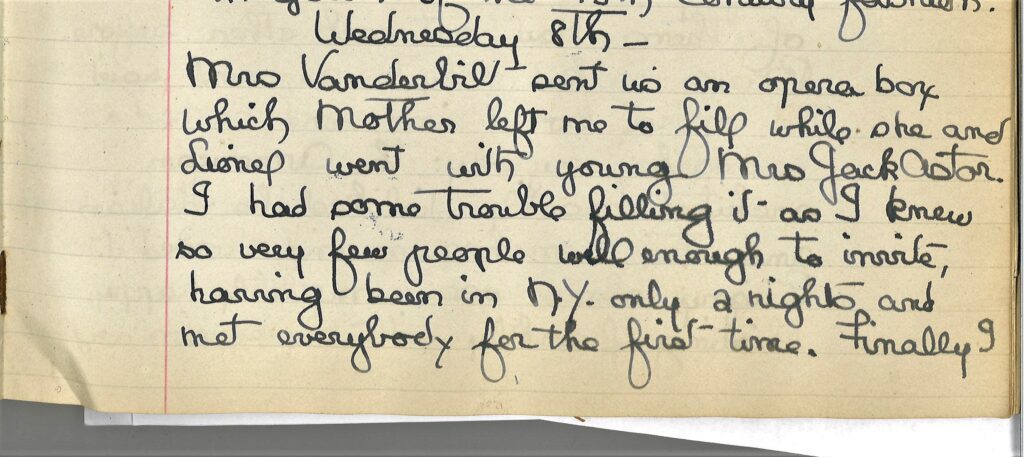 of the 15th Century fountain.
Wednesday 8th –
Mrs Vanderbilt sent us an opera box
which Mother left me to fill while she and
Lionel went with young Mrs Jack Astor.
I had some trouble filling it as I knew
so very few people well enough to invite,
having been in N.Y. only 2 nights and
met everybody for the first time. Finally I